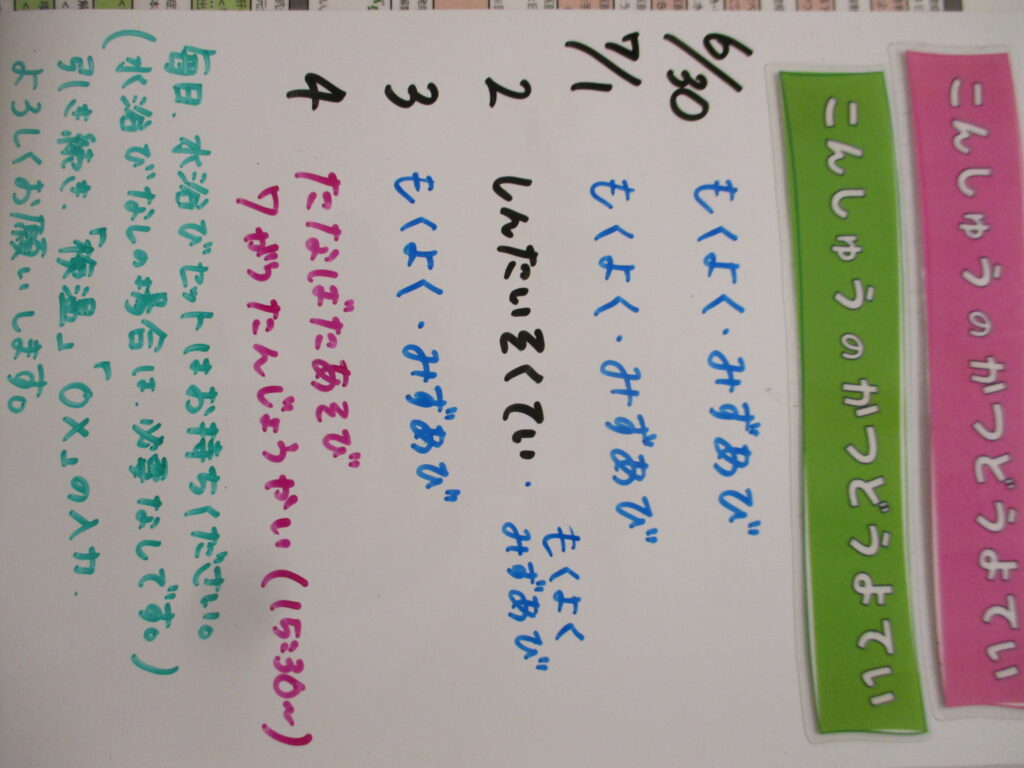 こんしゅうのかつどうよてい
こんしゅうのかつどうよてい
6/30 もくよく・みずあび
7/1 もくよく・みずあび
2 しんたいそくてい・もくよく
みずあび
3 もくよく・みずあび
4 たなばたあそび
7がつたんじょうかい(15:30〜)
毎日、水浴びセットはお持ちください。
(水浴びなしの場合は、必要なしです。)
引き続き、「検温」「○×」の入力、
よろしくお願いします。